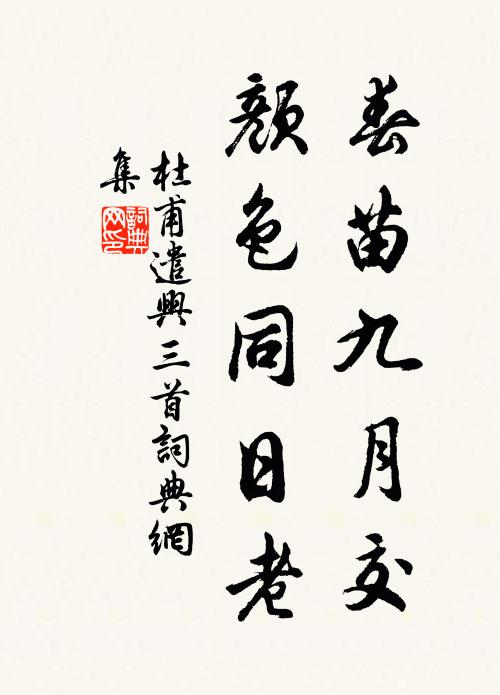 春苗九月交
顏色同日老
杜甫遣興三首詞典網
集
詞典網印